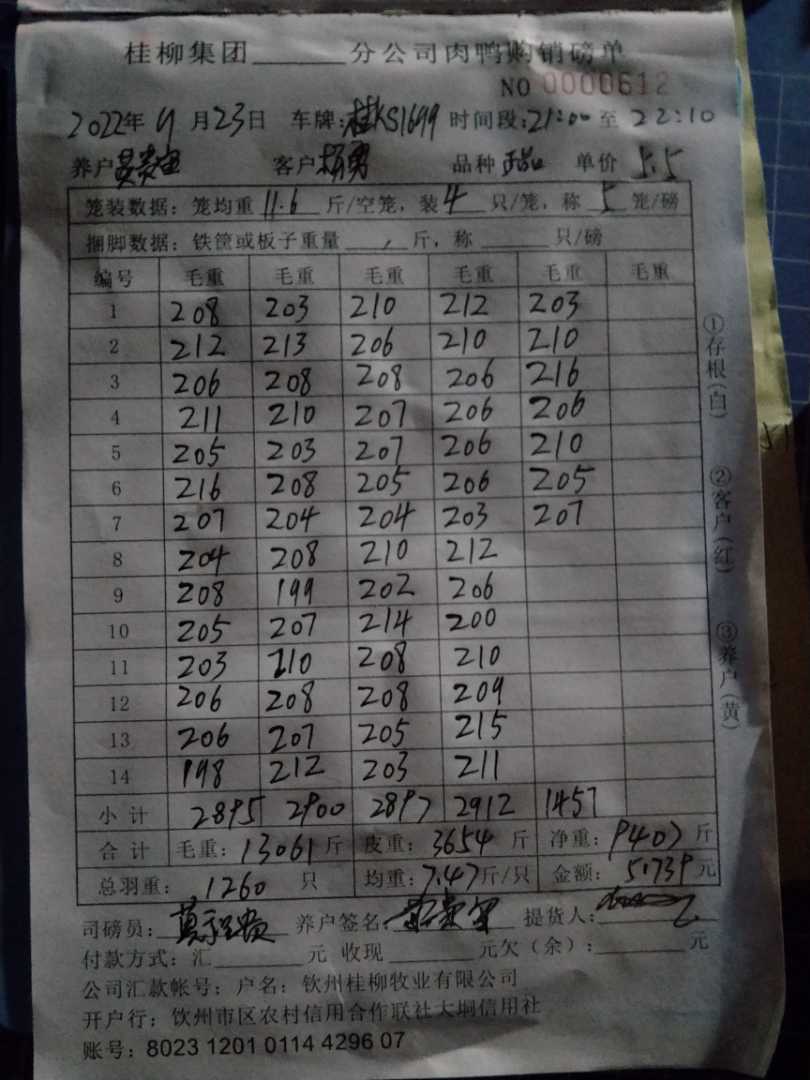 桂柳集团______分公司肉鸭购销磅单
NO 0000612
2022年9月23日 车牌:桂KS1699 时间段:21:00至22:10
养户 客户杨勇 品种 正品 单价 5.5
笼装数据:笼均重11.6斤/空笼,装4只/笼,称5笼/磅
捆脚数据:铁筐或板子重量 / 斤,称______只/磅
编号 毛重 毛重 毛重 毛重 毛重 毛重
1 208 203 210 212 203
2 212 213 206 210 210
3 206 208 208 206 216
4 211 210 207 206 206
5 205 203 207 206 210
6 216 208 205 206 205
7 207 204 204 203 207
8 204 208 210 212
9 208 199 202 206
10 205 207 214 200
11 203 210 208 210
12 206 208 208 209
13 206 207 205 215
14 198 212 203 211
小计 2895 2900 2897 2912 1457
合计 毛重:13061斤 皮重:3654斤 净重:9407斤
总羽重:1260只 均重:7.47斤/只 金额:51739元
司磅员: 养户签名: 提货人:
付款方式:汇______元 收现______元欠(余):______元
公司汇款帐号:户名:钦州桂柳牧业有限公司
开户行:钦州市区农村信用合作联社大垌信用社
账号:8023 1201 0114 4296 07
①存根(白) ②客户(红) ③养户(黄)